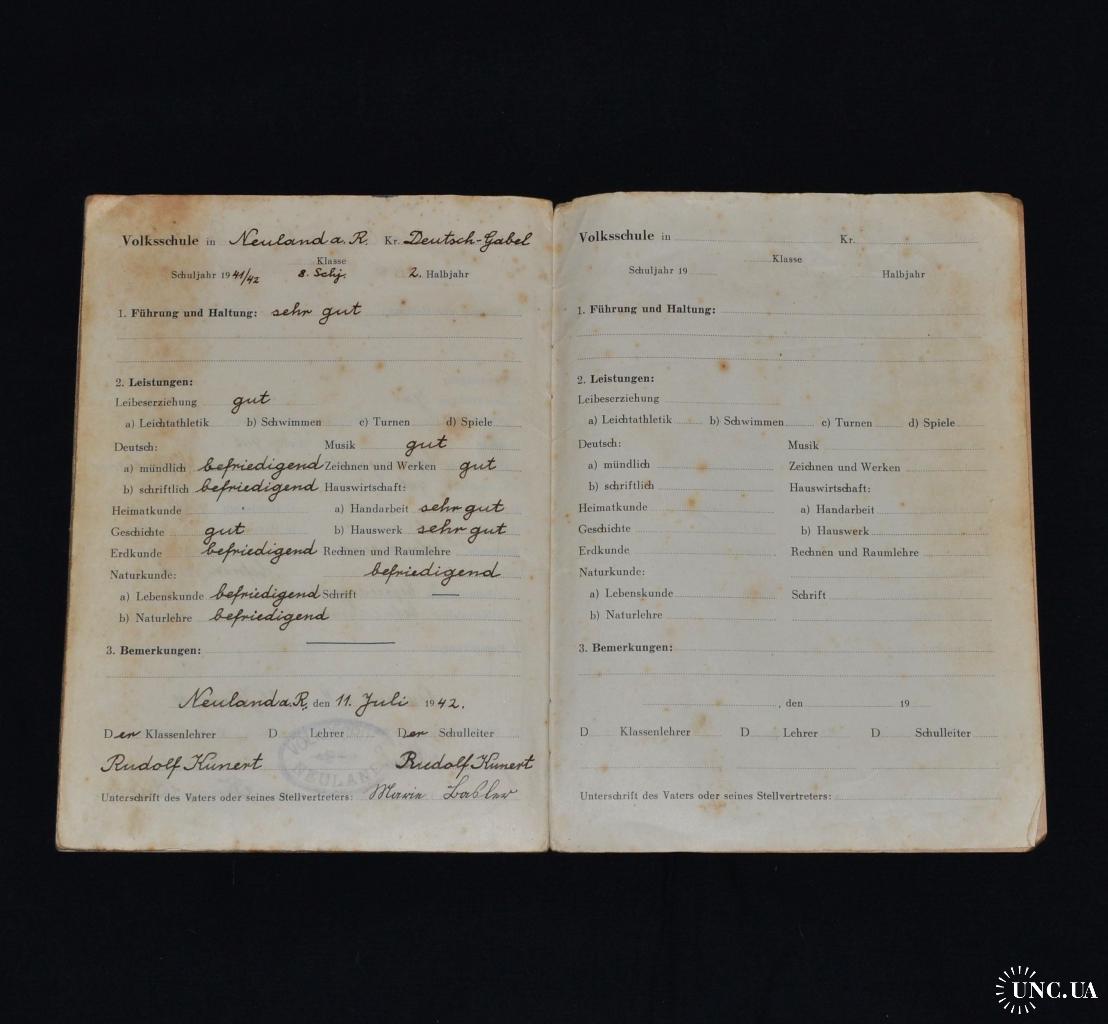 Volksschule in Neuland a. R. Kr. Deutsch-Gabel
Klasse
Schuljahr 1941/42 8. Schj. 2. Halbjahr
1. Führung und Haltung: sehr gut
2. Leistungen:
Leibeserziehung gut
a) Leichtathletik b) Schwimmen c) Turnen d) Spiele
Deutsch: Musik gut
a) mündlich befriedigend Zeichnen und Werken gut
b) schriftlich befriedigend Hauswirtschaft:
Heimatkunde a) Handarbeit sehr gut
Geschichte gut b) Hauswerk sehr gut
Erdkunde befriedigend Rechnen und Raumlehre
Naturkunde: befriedigend
a) Lebenskunde befriedigend Schrift —
b) Naturlehre befriedigend
3. Bemerkungen:
Neuland a. R., den 11. Juli 1942.
Der Klassenlehrer D Lehrer Der Schulleiter
Rudolf Kunert Rudolf Kunert
NEULAND
Unterschrift des Vaters oder seines Stellvertreters: Marie
Volksschule in Kr.
Klasse
Schuljahr 19 Halbjahr
1. Führung und Haltung:
2. Leistungen:
Leibeserziehung
a) Leichtathletik b) Schwimmen c) Turnen d) Spiele
Deutsch: Musik
a) mündlich Zeichnen und Werken
b) schriftlich Hauswirtschaft:
Heimatkunde a) Handarbeit
Geschichte b) Hauswerk
Erdkunde Rechnen und Raumlehre
Naturkunde:
a) Lebenskunde Schrift
b) Naturlehre
3. Bemerkungen:
, den 19
D Klassenlehrer D Lehrer D Schulleiter
Unterschrift des Vaters oder seines Stellvertreters:
UNC.UA